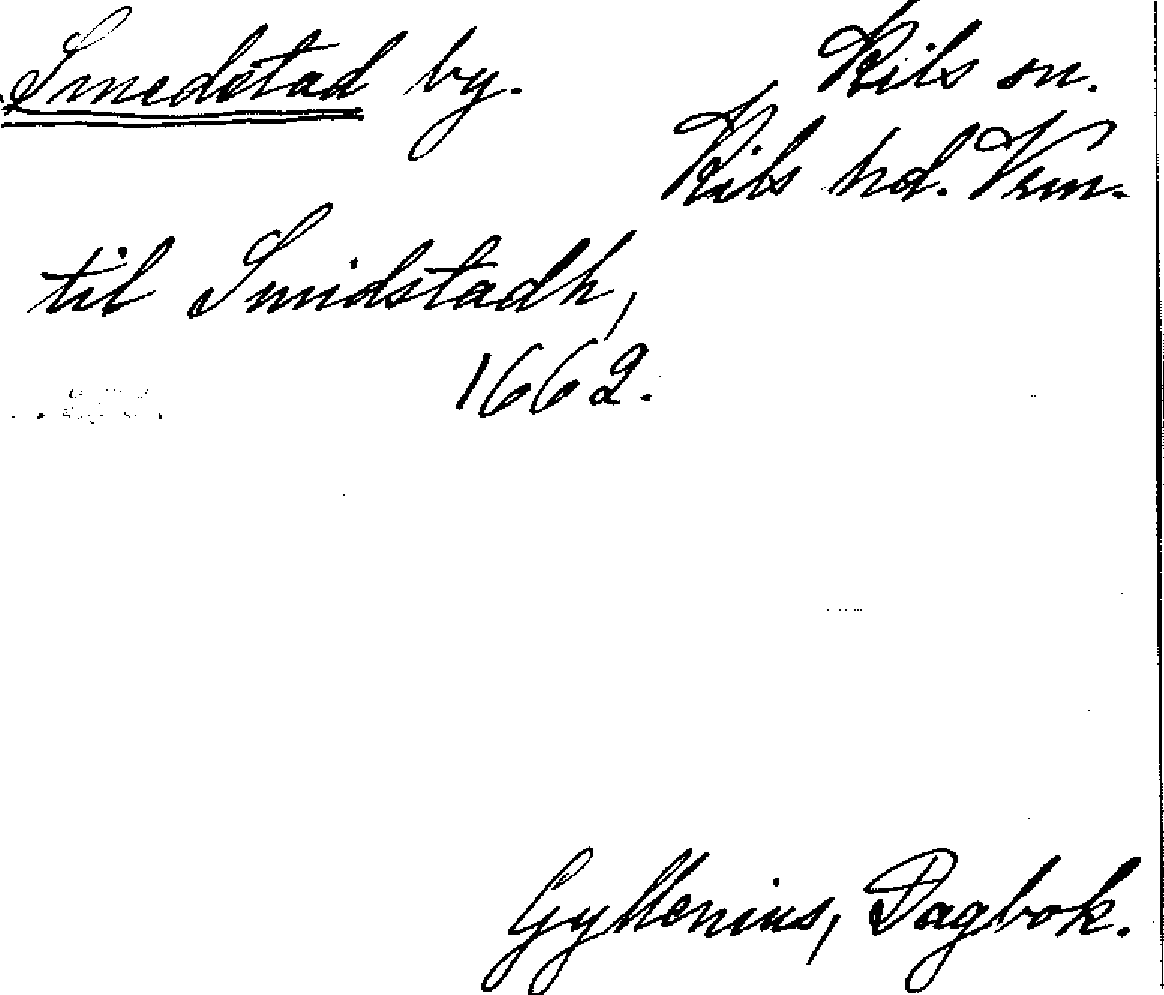 Smedstad by. Kils sn.
Kils hd. Vrm.
til Smidstadh,
1662.
Gyllenius, Dagbok.